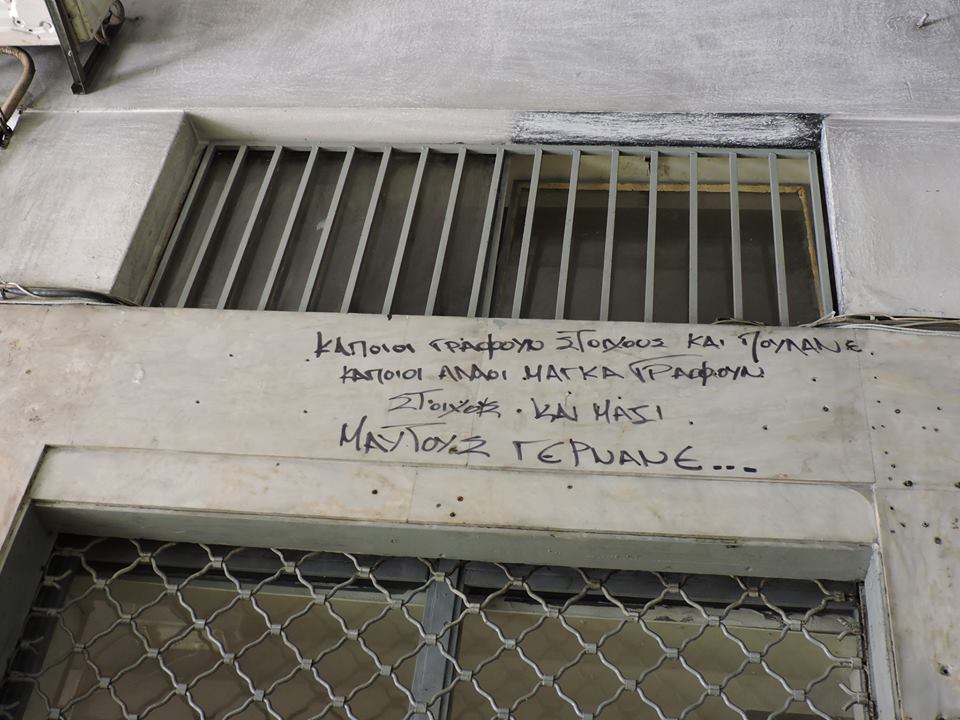 ΚΑΠΟΙΟΙ ΓΡΑΦΟΥΝ ΣΤΟΙΧΟΥΣ ΚΑΙ ΠΟΥΛΑΝΕ.
ΚΑΠΟΙΟΙ ΑΛΛΟΙ ΜΑΓΚΑ ΓΡΑΦΟΥΝ
ΣΤΟΙΧΟΣ . ΚΑΙ ΜΑΖΙ
Μ'ΑΥΤΟΥΣ ΓΕΡΝΑΝΕ...